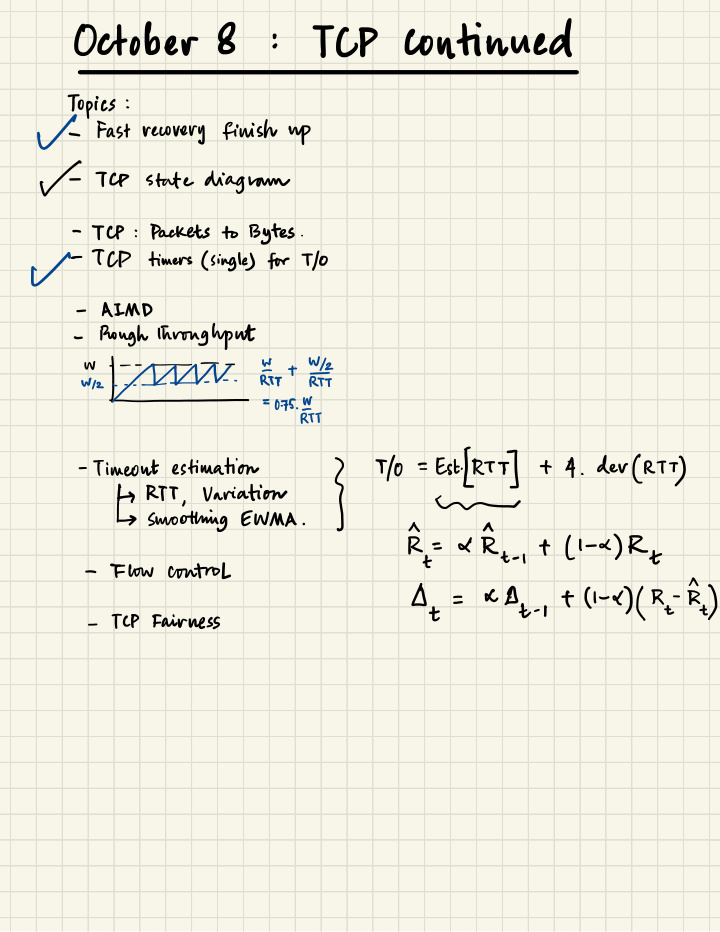 October 8 : TCP continued
Topics :
- Fast recovery finish up
- TCP state diagram
- TCP : Packets to Bytes.
- TCP timers (single) for T/O
- AIMD
- Rough Throughput
W
W/2
W/RTT + W/2/RTT
= 0.75. W/RTT
- Timeout estimation
↳ RTT, Variation
↳ Smoothing EWMA.
T/O = Est.[RTT] + 4. dev(RTT)
R̂_t = α R̂_t-1 + (1-α) R_t
Δ_t = α Δ_t-1 + (1-α)(R_t - R̂_t)
- Flow control
- TCP Fairness